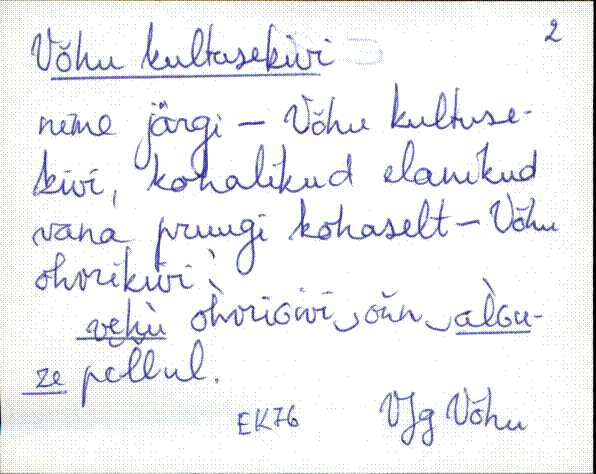 2
Võhu kultusekivi
nime järgi – Võhu kultuse-
kivi, kohalikud elanikud
vana pruugi kohaselt – Võhu
ohvrikivi.
vehù òhvriGivi oàn àlGu-
ze pellul.
EK76 VJg Võhu